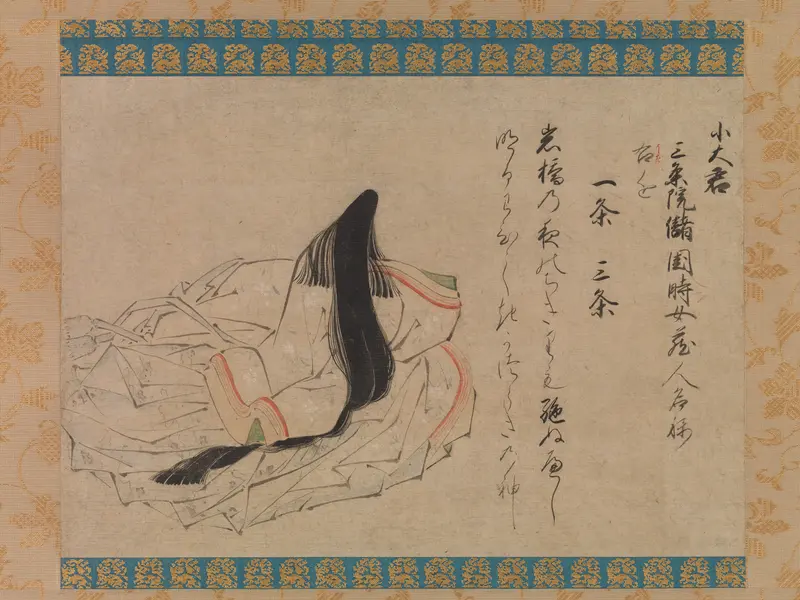 小大君
三条院儲 時女蔵人名称
一条 三条
岩橋乃夜のちきりも絶ぬへし
明るわひしきかつらきの神